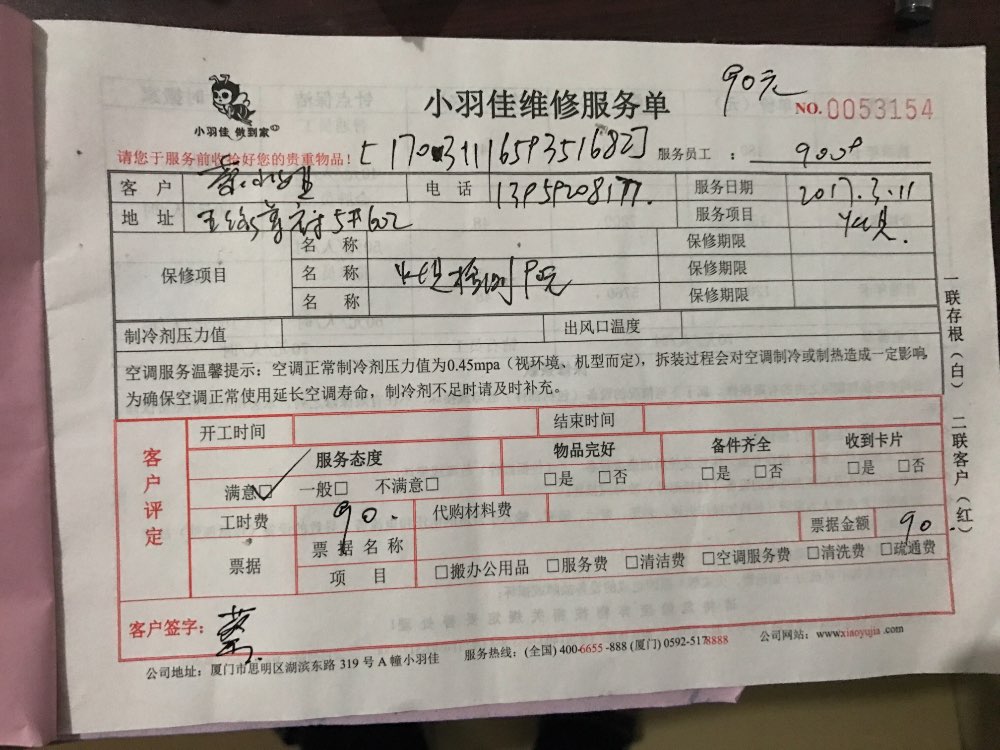 90元
小羽佳 做到家
小羽佳维修服务单
NO. 0053154
请您于服务前收拾好您的贵重物品!
服务员工 :
客 户
电 话
服务日期 2017.3.11
地 址
服务项目
保修项目
名 称 保修期限
名 称 90元 保修期限
名 称 保修期限
制冷剂压力值 出风口温度
空调服务温馨提示：空调正常制冷剂压力值为0.45mpa（视环境、机型而定），拆装过程会对空调制冷或制热造成一定影响,
为确保空调正常使用延长空调寿命，制冷剂不足时请及时补充。
一联存根（白） 二联客户（红）
客户评定
开工时间 结束时间
服务态度 物品完好 备件齐全 收到卡片
满意☑ 一般□ 不满意□ □是 □否 □是 □否 □是 □否
工时费 90. 代购材料费
票据 票据名称 票据金额 90
项 目 □搬办公用品 □服务费 □清洁费 □空调服务费 □清洗费 □疏通费
客户签字：
公司地址：厦门市思明区湖滨东路 319 号 A 幢小羽佳 服务热线：(全国) 400-6655 -888 (厦门) 0592-5178888 公司网站：www.xiaoyujia .com